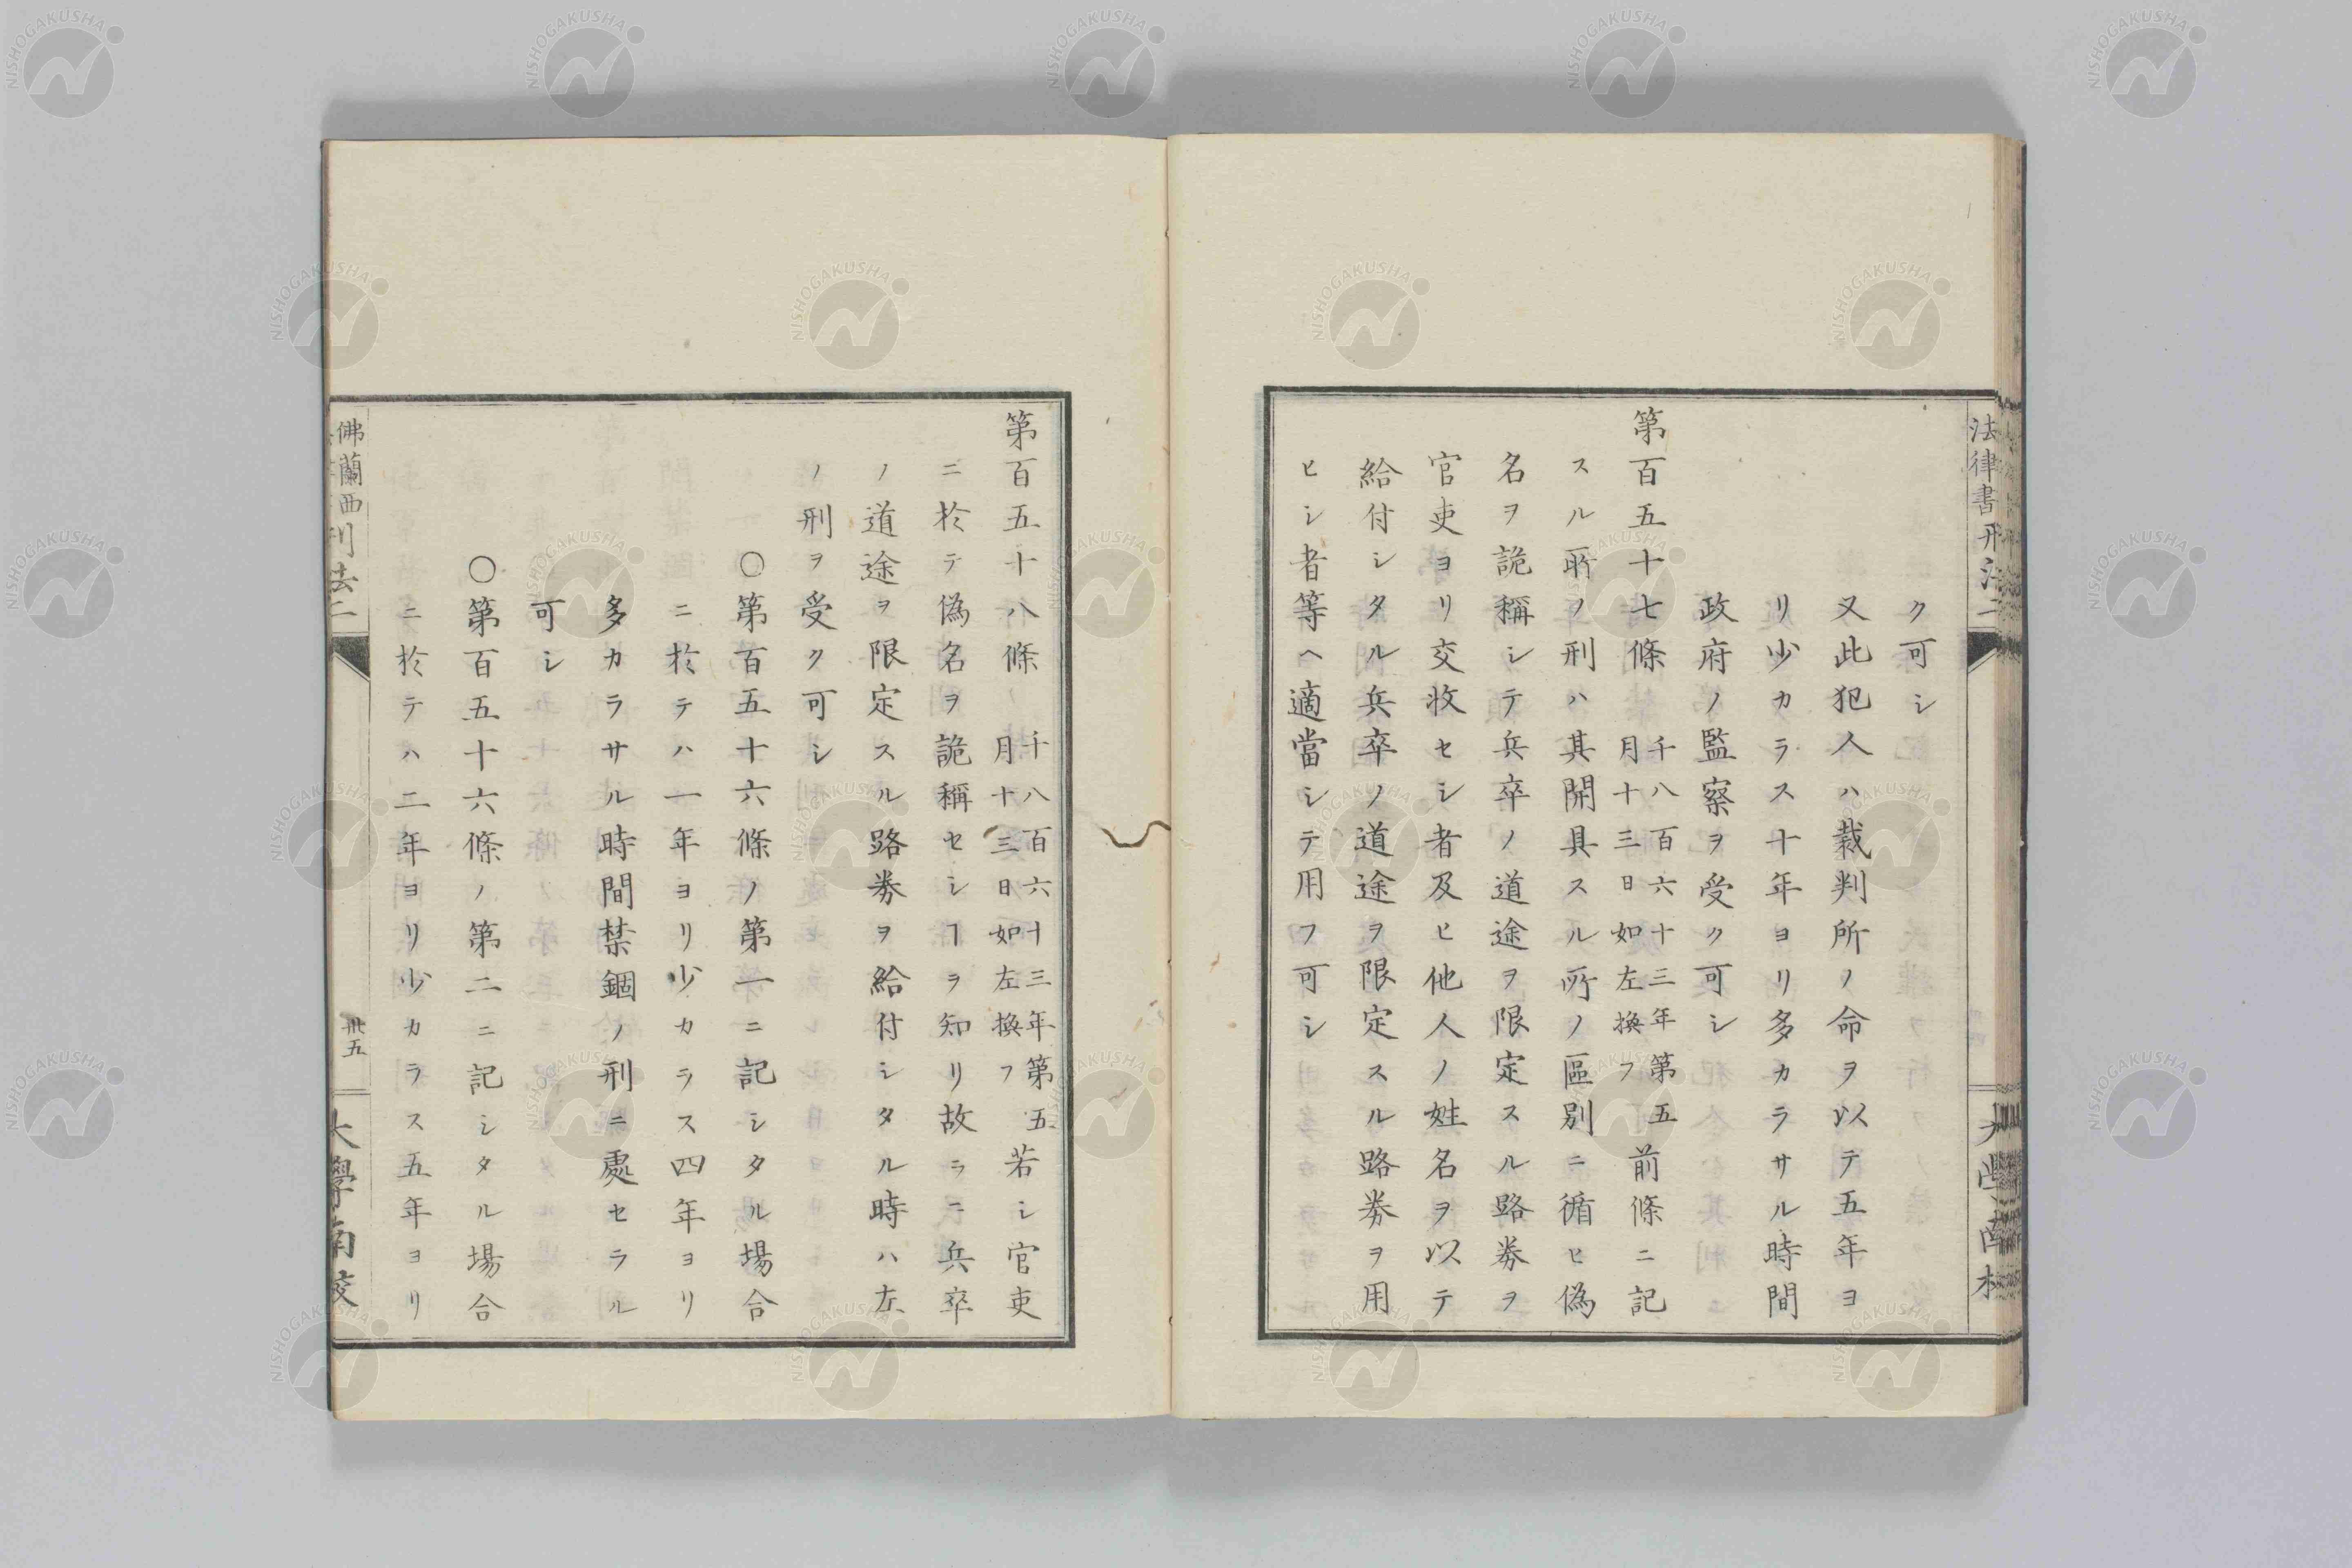 ク可シ
又此犯人ハ裁判所ノ命ヲ以テ五年ヨ
リ少カラス十年ヨリ多カラサル時間
政府ノ監察ヲ受ク可シ
第百五十七條 千八百六十三年第五月十三日如左換フ 前條ニ記
スル所ノ刑ハ其開具スル所ノ區別ニ循ヒ偽
名ヲ詭稱シテ兵卒ノ道途ヲ限定スル路券ヲ
官吏ヨリ交收セシ者及ヒ他人ノ姓名ヲ以テ
給付シタル兵卒ノ道途ヲ限定スル路券ヲ用
ヒシ者等ヘ適當シテ用フ可シ
第百五十八條 千八百六十三年第五月十三日如左換フ 若シ官吏
ニ於テ偽名ヲ詭稱セシヿヲ知リ故ラニ兵卒
ノ道途ヲ限定スル路券ヲ給付シタル時ハ左
ノ刑ヲ受ク可シ
〇第百五十六條ノ第一ニ記シタル場合
ニ於テハ一年ヨリ少カラス四年ヨリ
多カラサル時間禁錮ノ刑ニ處セラル
可シ
〇第百五十六條ノ第二ニ記シタル場合
ニ於テハ二年ヨリ少カラス五年ヨリ
佛蘭西刑法二
卅五
大學南校
NISHOGAKUSHA